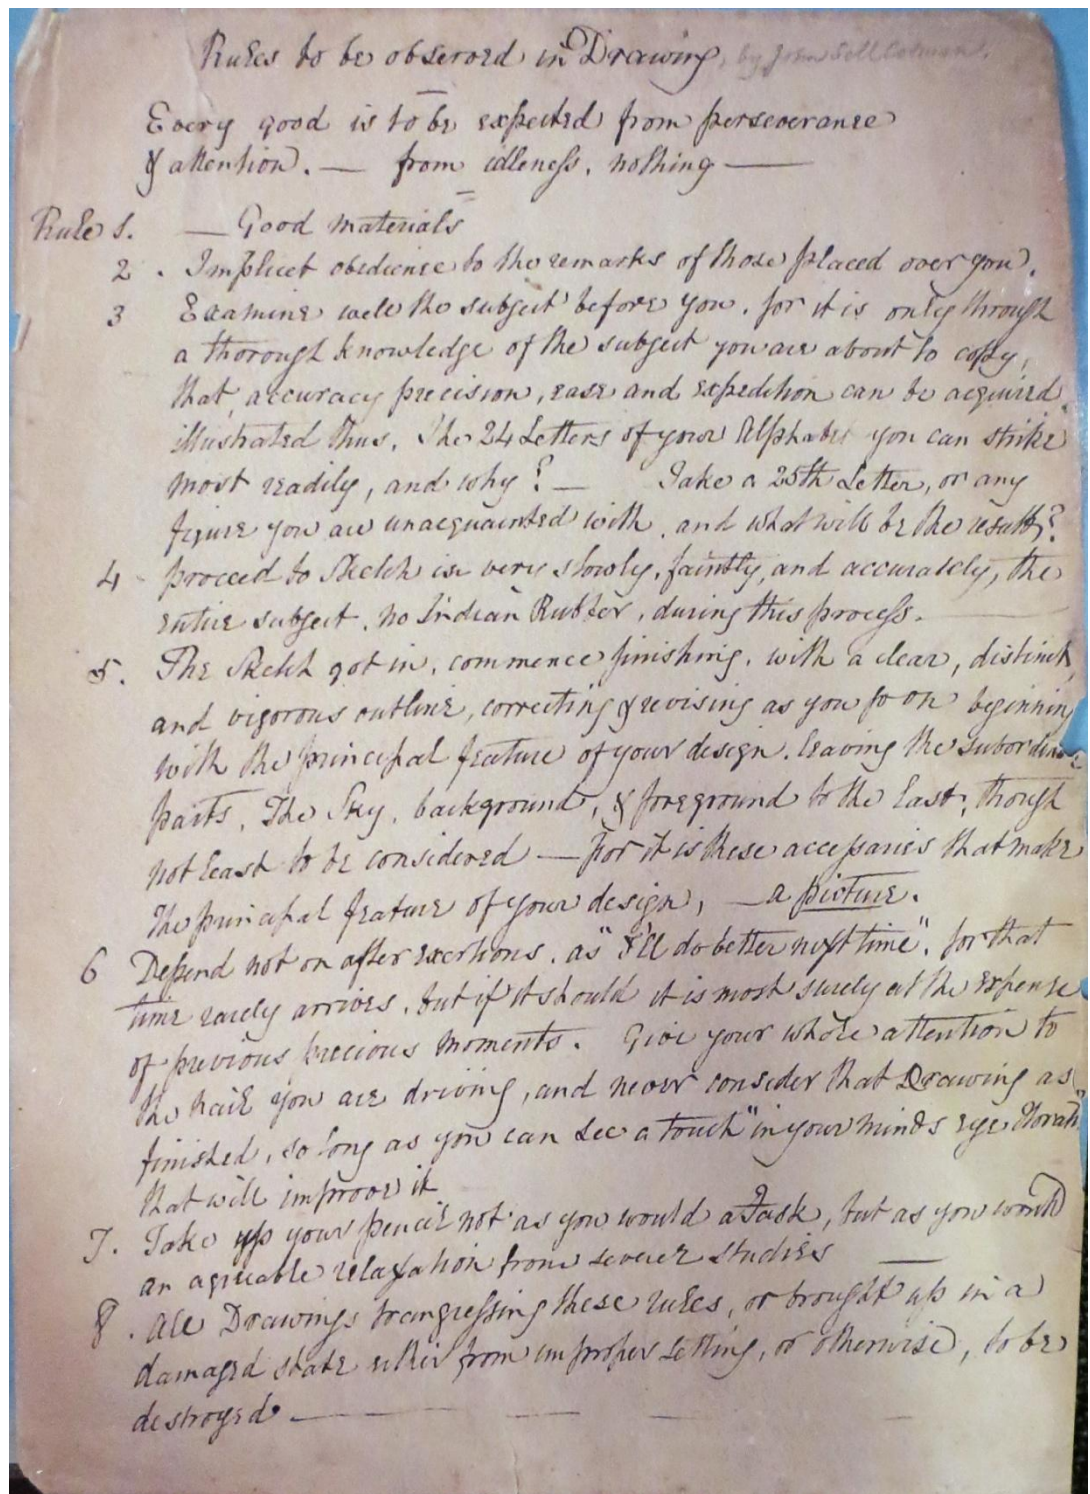 Rules to be observed in Drawing, by John Sell Cotman.
Every good is to be expected from perseverance
& attention. — from idleness, nothing —
Rule 1. — Good materials
2. Implicet obedience to the remarks of those placed over you.
3 Examine well the subject before you, for it is only through
a thorough knowledge of the subject you are about to copy,
that, accuracy precision, ease and expedition can be acquired,
illustrated thus, The 24 Letters of your Alphabet you can strike
most readily, and why? — Take a 25th Letter, or any
figure you are unacquainted with, and what will be the result?
4 proceed to Sketch in very slowly, faintly, and accurately, the
entire subject, no Indian Rubber, during this process.
5. The Sketch got in, commence finishing, with a clear, distinct,
and vigorous outline, correcting & revising as you go on beginning
with the principal feature of your design, leaving the subordinate
parts, The Sky, background, & foreground to the last, though
not least to be considered — For it is these accessaries that make
the principal feature of your design, — a picture.
6 Depend not on after exertions, as "I'll do better next time", for that
time rarely arrives, but if it should it is most surely at the expense
of previous precious moments. Give your whole attention to
the nail you are driving, and never consider that Drawing as
finished, so long as you can see a touch "in your minds eye Horatio"
that will improve it
7. Take up your pencil not as you would a Task, but as you would
an agreeable relaxation from severer studies —
8. All Drawings trangressing these rules, or brought up in a
damaged state either from improper setting, or otherwise, to be
destroyed. — — — —